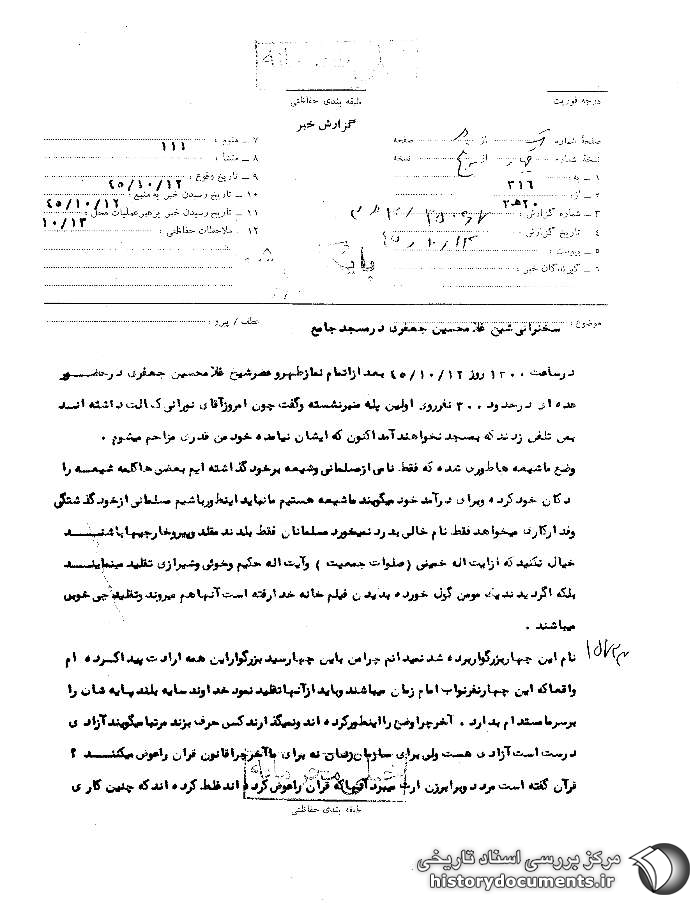 درجه فوریت
طبقه بندی حفاظتی
گزارش خبر
صفحهٔ شماره از صفحه
نسخهٔ شماره از نسخه
۱ ـ به : ۳۱۶
۲ ـ از : ۲۰ هـ ۳
۳ ـ شماره گزارش :
۴ ـ تاریخ گزارش :
۵ ـ پیوست :
۶ ـ گیرندگان خبر :
۷ ـ منبع : ۱۱۱
۸ ـ منشأ :
۹ ـ تاریخ وقوع : ۴۵/۱۰/۱۲
۱۰ ـ تاریخ رسیدن خبر به منبع : ۴۵/۱۰/۱۲
۱۱ ـ تاریخ رسیدن خبر برهبر عملیات محل : ۱۰/۱۳
۱۲ ـ ملاحظات حفاظتی :
موضوع : سخنرانی شیخ غلامحسین جعفری در مسجد جامع
عطف / پیرو :
در ساعت ۱۳۰۰ روز ۴۵/۱۰/۱۲ بعد از اتمام نماز ظهر و عصر شیخ غلامحسین جعفری در حضور
عده ای در حدود ۳۰۰ نفر روی اولین پله منبر نشسته و گفت چون امروز آقای نورانی کسالت داشته اند
بمن تلفن زدند که بمسجد نخواهند آمد اکنون که ایشان نیامده خود من قدری مزاحم میشوم .
وضع ما شیعه ها طوری شده که فقط نامی از مسلمانی و شیعه برخود گذاشته ایم بعضی ها کلمه شیعه را
دکان خود کرده و برای درآمد خود میگویند ما شیعه هستیم ما نباید اینطور باشیم مسلمانی از خود گذشتگی
و فداکاری میخواهد فقط نام خالی بدرد نمیخورد مسلمانان فقط بلدند مقلد و پیرو خارجیها باشند
خیال نکنید که از آیت اله خمینی (صلوات جمعیت ) و آیت اله حکیم و خوئی و شیرازی تقلید مینمایند
بلکه اگر دیدند یک مومن گول خورده بدیدن فیلم خانه خدا رفته است آنها هم میروند و تقلید چی خوبی
میباشند .
نام این چهار بزرگوار برده شد نمیدانم چرا من باین چهار سید بزرگوار این همه ارادت پیدا کرده ام
واقعا که این چهار نفر نواب امام زمان میباشند و باید از آنها تقلید نمود خداوند سایه بلند پایه شان را
برسر ما مستدام بدارد . آخر چرا وضع را اینطور کرده اند و نمیگذارند کسی حرف بزند مرتبا میگویند آزادی
درست است آزادی هست ولی برای سازمان زنان نه برای ما آخر چرا قانون قرآن را عوض میکنند ؟
قرآن گفته است مرد دو برابر زن ارث میبرد آنهاکه قرآن را عوض کرده اند غلط کرده اند که چنین کاری
طبقه بندی حفاظتی
مرکز بررسی اسناد تاریخی
historydocuments.ir